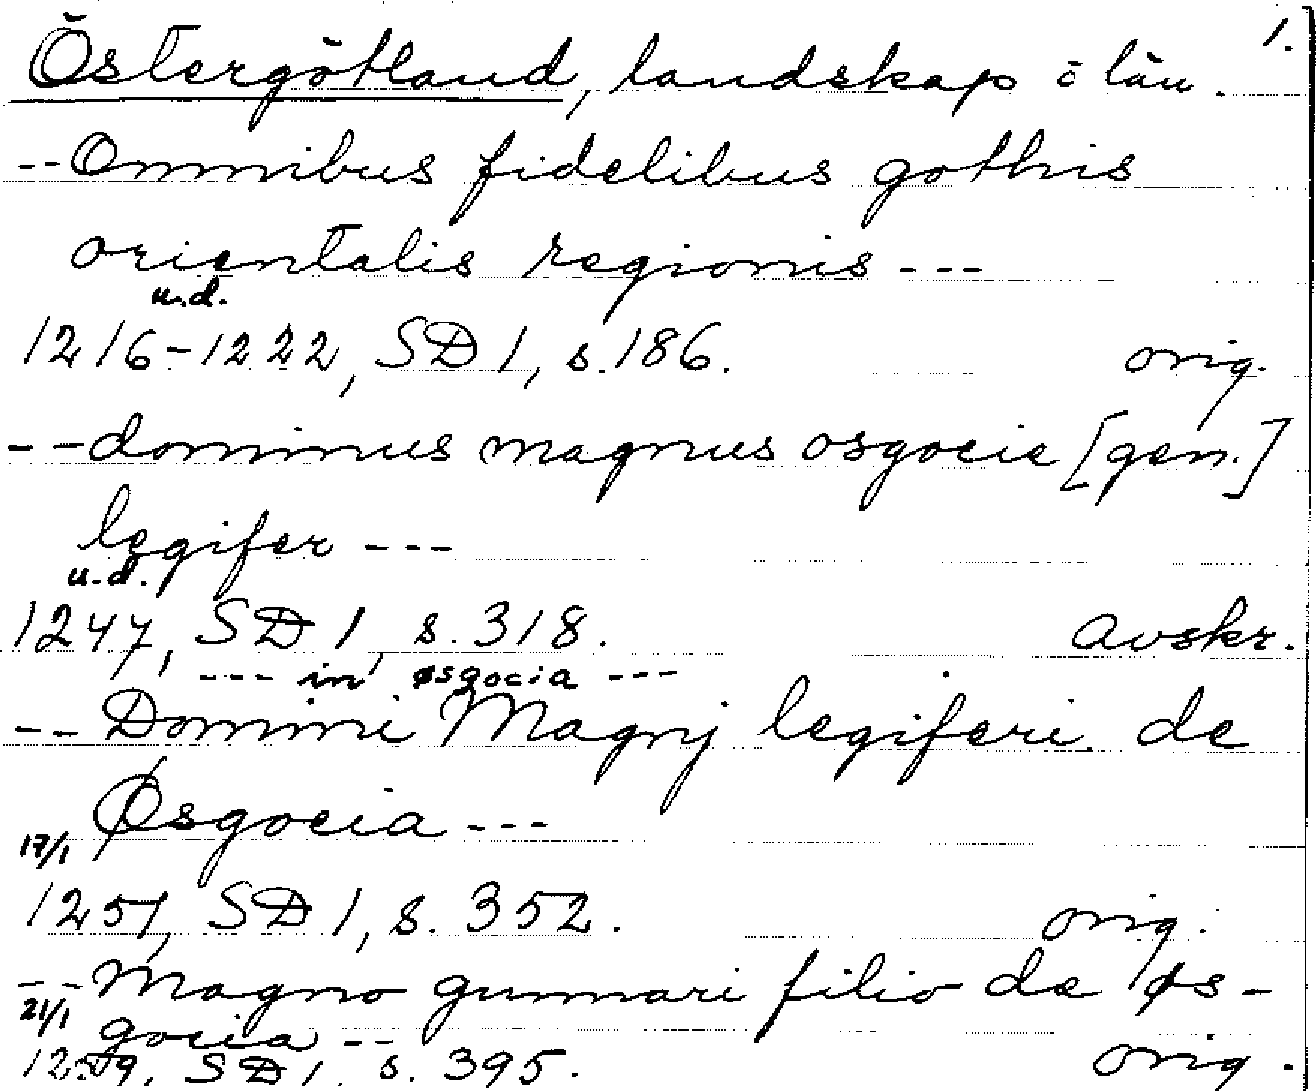 1.
Östergötland, landskap o län.
-- Omnibus fidelibus gothis
orientalis regionis ---
u.d.
1216-1222, SD 1, s. 186. orig.
-- dominus magnus osgocie [gen.]
legifer ---
u.d.
1247, SD 1, s. 318. avskr.
--- in øsgocia ---
-- Domini Magnj legiferi de
Øsgocia ---
17/1
1251, SD 1, s. 352. orig.
-- Magno gunnari filio de øs-
21/1 gocia --
1259, SD 1, s. 395. orig.